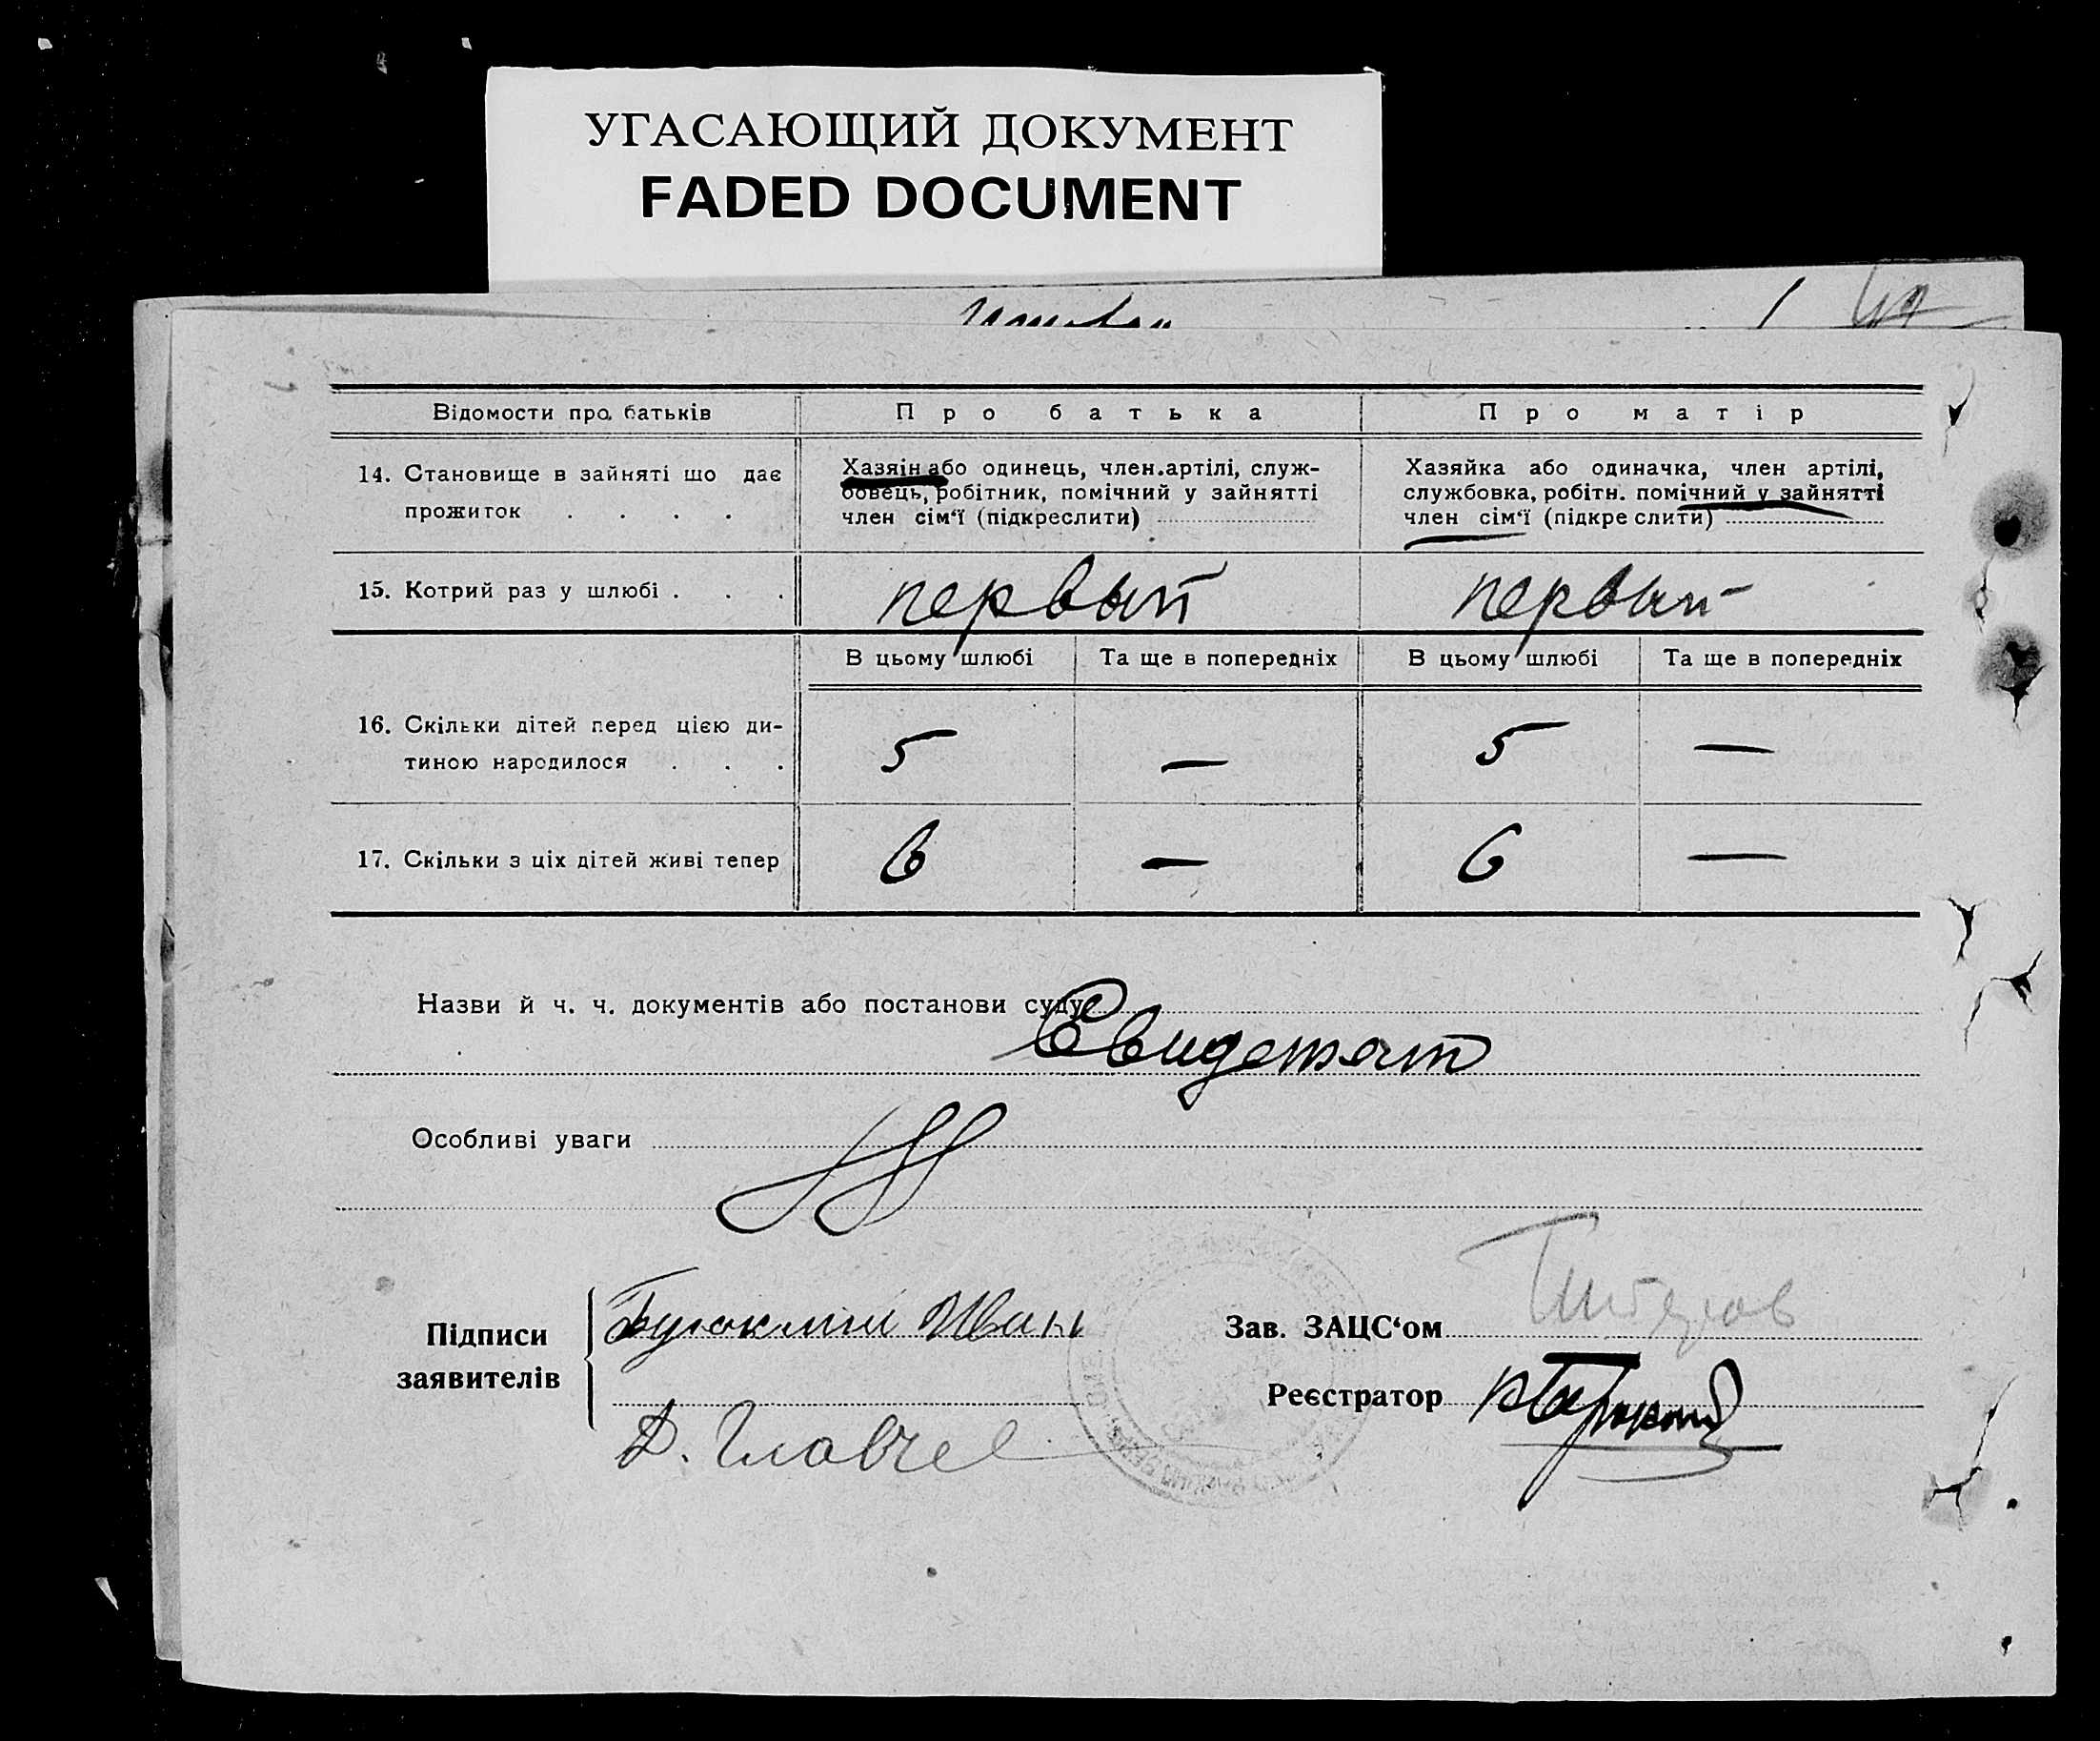 УГАСАЮЩИЙ ДОКУМЕНТ
FADED DOCUMENT
Відомости про батьків
Про батька
Про матір
14. Становище в зайняті що дає
прожиток . . . .
Хазяін або одинець, член.артілі, служ-
бовець, робітник, помічний у зайнятті
член сім‘ї (підкреслити)
Хазяйка або одиначка, член артілі,
службовка, робітн. помічний у зайнятті
член сім‘ї (підкреслити)
15. Котрий раз у шлюбі . . .
первый
первый
В цьому шлюбі
Та ще в попередніх
В цьому шлюбі
Та ще в попередніх
16. Скільки дітей перед цією ди-
тиною народилося . . .
5
—
5
—
17. Скільки з ціх дітей живі тепер
6
—
6
—
Назви й ч. ч. документів або постанови суду
Особливі уваги
Підписи
заявителів
Иван
Д. Главчев
Зав. ЗАЦС‘ом
Реєстратор